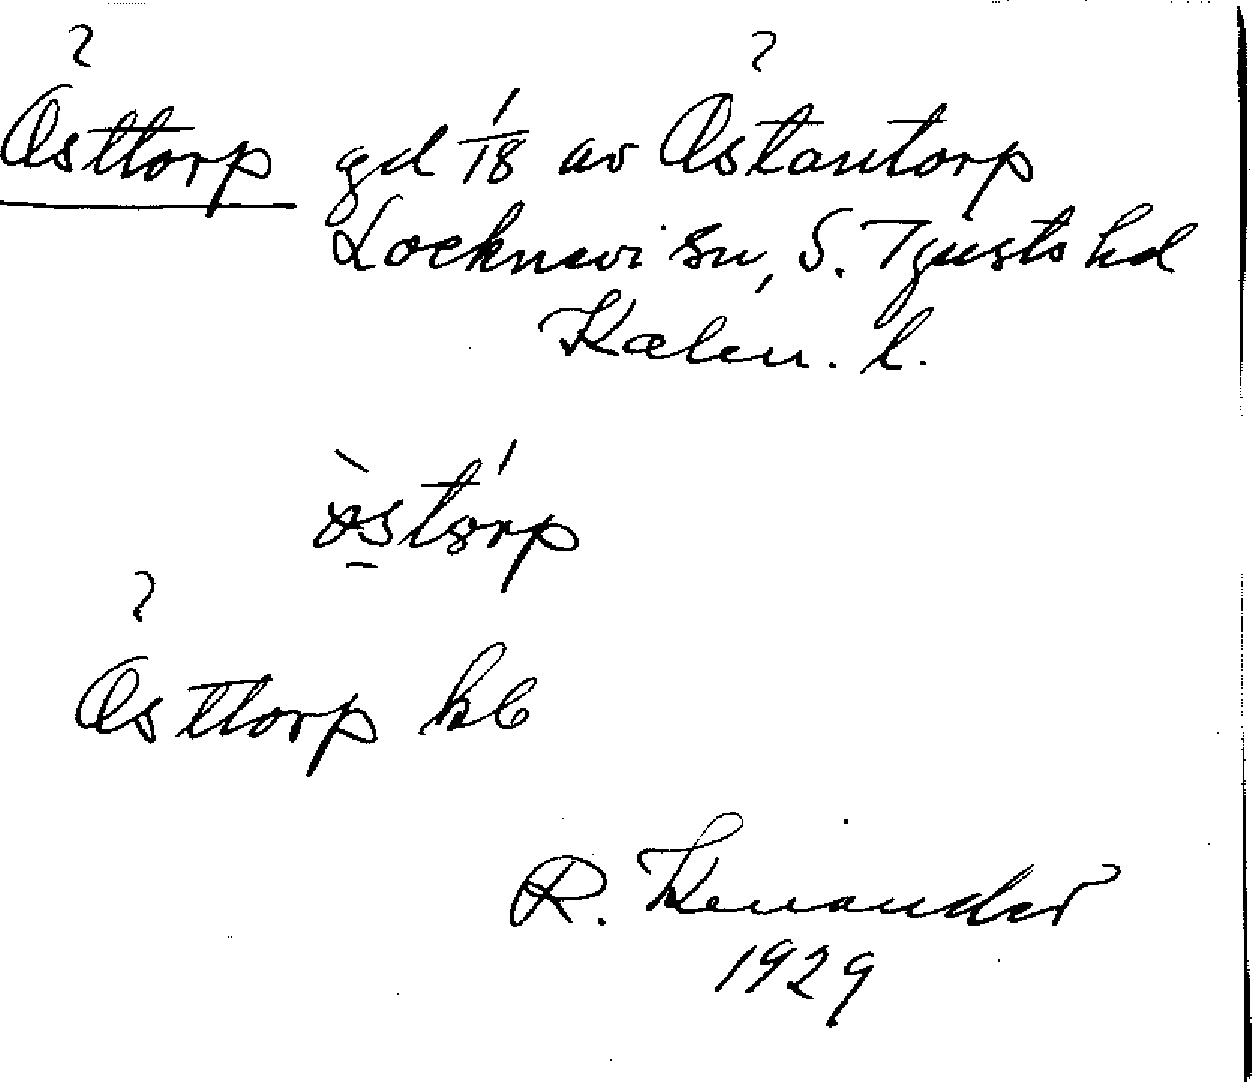 Östtorp gd 1/18 av Östantorp
Locknevi sn, S. Tjusts hd
Kalm. l.
östorp
Östtorp kb
R. Kenander
1929